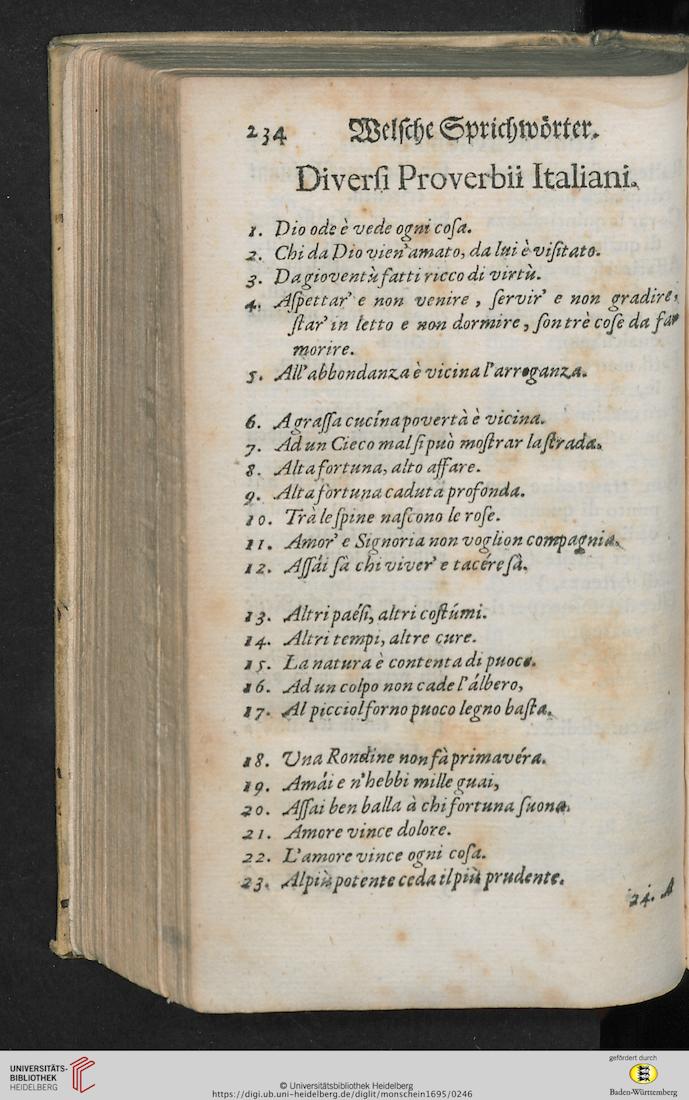 234 Welſche Sprichwörter.
Diverſi Proverbii Italiani.
1. Dio ode è vede ogni coſa.
2. Chi da Dio vien' amato, da lui è viſitato.
3. Da gioventù fatti ricco di virtù.
4. Aſpettar' e non venire, ſervir' e non gradire,
ſtar' in letto e non dormire, ſon trè coſe da far
morire.
5. All' abbondanza è vicina l'arroganza.
6. A graſſa cucína povertà è vicina.
7. Ad un Cieco mal ſi può moſtrar la ſtrada.
8. Alta fortuna, alto affare.
9. Alta fortuna caduta profonda.
10. Trà le ſpine naſcono le roſe.
11. Amor' e Signoria non voglion compagnia.
12. Aſſái ſà chi viver' e tacére ſà.
13. Altri paéſi, altri coſtúmi.
14. Altri tempi, altre cure.
15. La natura è contenta di puoco.
16. Ad un colpo non cade l'álbero,
17. Al picciol forno puoco legno baſta.
18. Una Rondine non fà primavéra.
19. Amái e n'hebbi mille guai,
20. Aſſai ben balla à chi fortuna ſuona.
21. Amore vince dolore.
22. L'amore vince ogni coſa.
23. Al più potente ceda il più prudente.
24. A
UNIVERSITÄTS-
BIBLIOTHEK
HEIDELBERG
© Universitätsbibliothek Heidelberg
https://digi.ub.uni-heidelberg.de/diglit/monschein1695/0246
gefördert durch
Baden-Württemberg